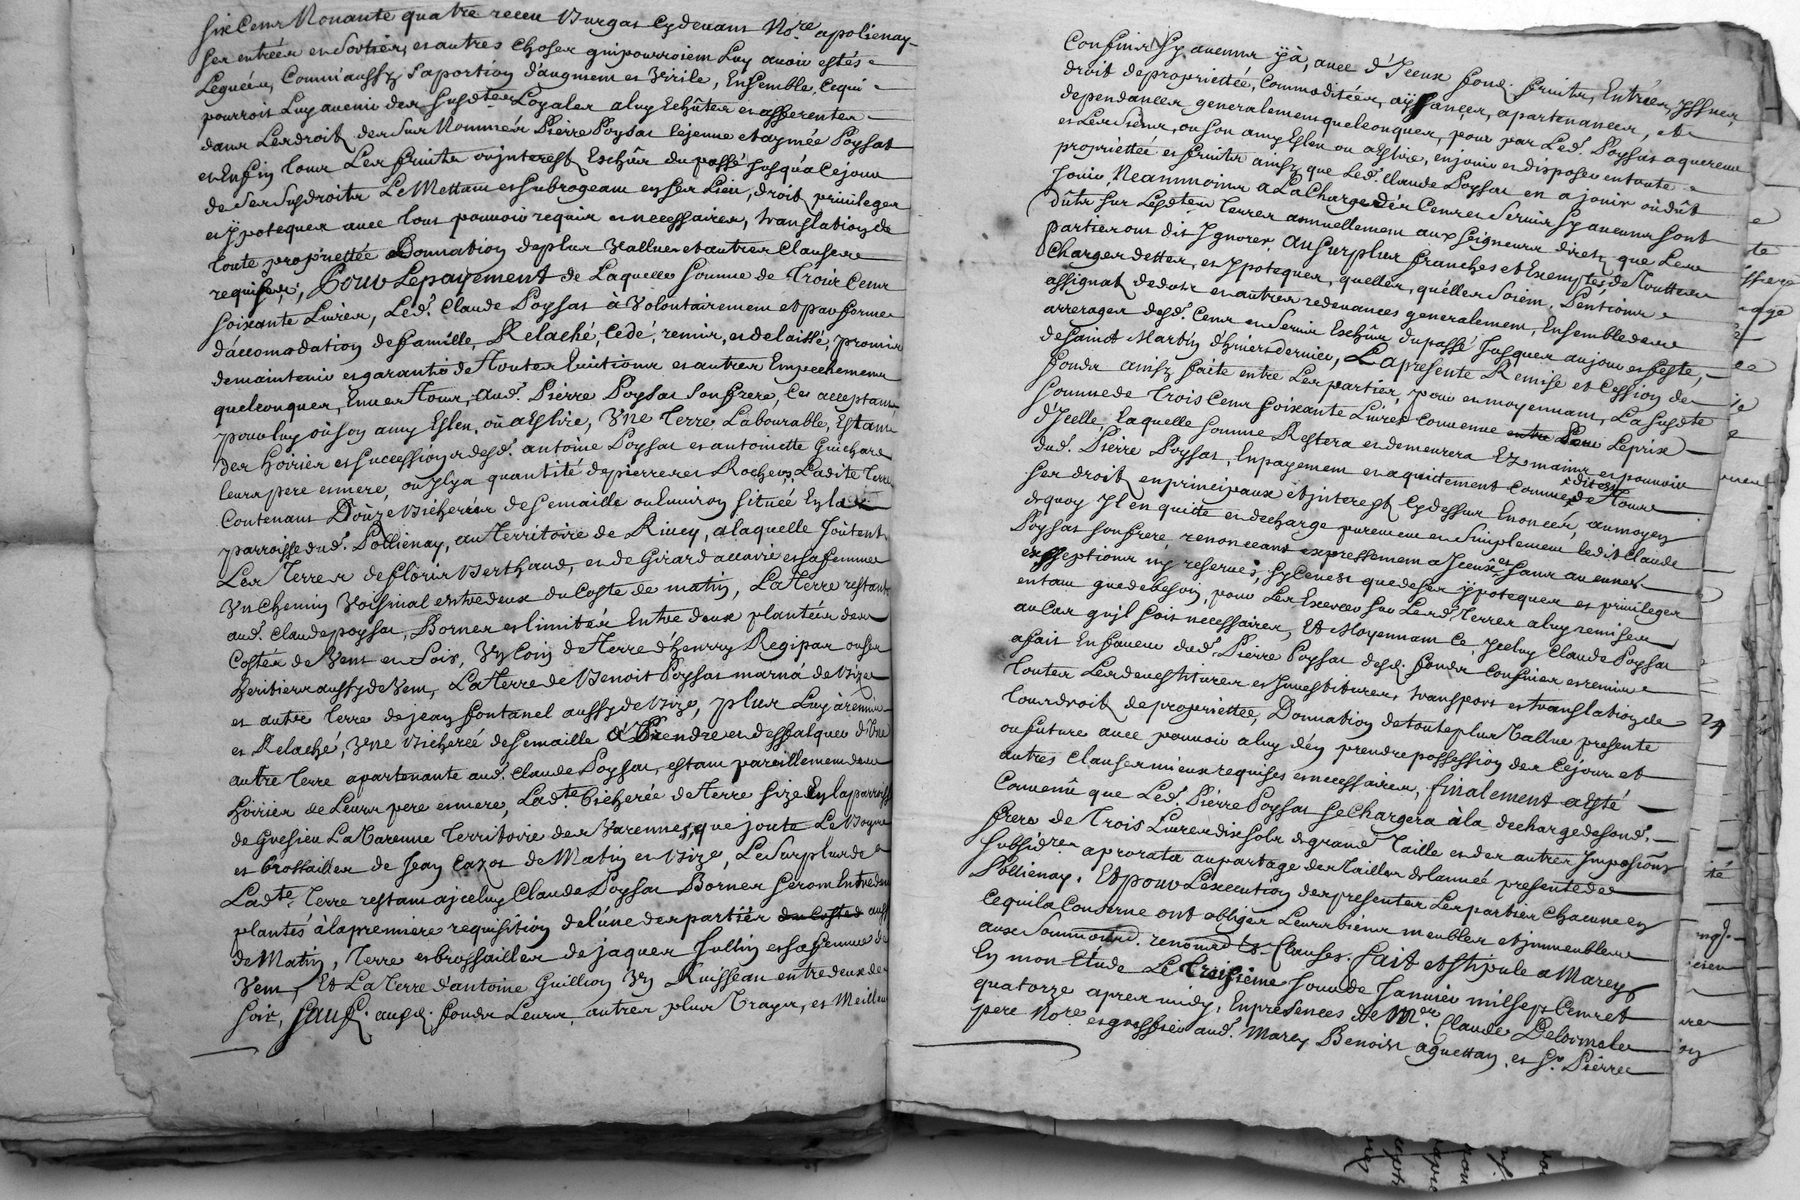 six Cens Nonante quatre receu Burgas Cydevant No.re apolienay
ses entrées en Sorties, et autres choses qui pourroient Luy avoir estés
Leguées, Comm'aussy saportion d'augment et Virile, Ensemble Cequi
pourroit Luy avenir des susdtes Loyales a luy Echûtes et afferentes
dans Les droits des sus Nommés Pierre Poysat lejeune et aymée Poysat
et Enfin tous Les fruits ou jnterest Eschûs du passé Jusqu'à Cejour
de ses susdroits Le Mettant et subrogeant en ses Lieu, droit privileges
et ypoteques avec tous pouvoir requis et necessaires, translation de
toute proprietée Donnation de plus Vallue et autres Clauses
requises, Pour Le payement de Laquelle somme de Trois Cens
soixante Livres, Led. Claude Poysat à Volontairement et par forme
d'accomodation defamille, Relaché, Cedé, remis, et delaissé, promis
demaintenir et garantir de Toutes Evictions et autres Empechements
quelconques, Envers Tous, aud. Pierre Poysat son frere, Ces acceptant
pour luy ou son amy Esleu, ou à Eslire, Vne Terre Labourable, Estant
des hoiries et successions desd. antoine Poysat et antoinette Guichard
leurs pere et mere, ou jlya quantité de pierres et Rochers, Ladite Terre
Contenant Doûze Bicherées de semaille ou Environ située En la
parroisse dud. Pollienay, au Territoire de Rivey, a laquelle Joûtent
Les Terres de flôris Berthaud, et de Girard accarié et sa femme
Vn Chemin Voisinal entredeux du Coste de matin, La Terre restante
aud. Claude poysat, Bornes et limites Entre deux plantées des
Costés de Vent et Soir, Vn Coin de Terre d'henry Regipas ou ses
heritiers aussy de Vent, La Terre de Benoit Poysat marna de Bize
et autre Terre de jean fontanel aussy de Bize, plus Luy à remis
et Relaché, Vne Bicherée de semaille à Prendre et deffalquer d'Vne
autre Terre apartenante aud. Claude Poysat, estant pareillement des
hoiries de Leurs pere et mere, Ladte bicherée de Terre size En la parroisse
de Gresieu La Varenne Territoire des Varennes, que joute Le
et brossailles de Jean Cazot de Matin et Bize, Le surplus de
Ladte Terre restant a jceluy Claude Poysat Bornes seront Entredeux
plantés à la premiere requisition de l'une des parties du Costed aussy
de Matin, Terre et brossailles de jaques Jullin et sa femme de
Vent, Et La Terre d'antoine Guillion Vn Ruisseau entredeux de
soir, sauf. ausd. fonds Leurs, autres plus Vrays, et Meilleurs
Confins sy aucuns ÿ à, avec d'Jceux fond. fruits, Entrées, Jssues,
droit de proprietée, Commoditées, aÿsances, apartenances, et
dependances generalement quelconques, pour par Led. Poysat aquereur
et Les siens, ou son amy Eslen ou a Eslire, en jouir et disposer en toute
proprietée et fruits ainsy que Led. Claude Poysat en a jouir ou dût
Jouir Neanmoins a La Charge des Cens et Servis sy aucuns sont
dûts sur Lesdtes Terres annuellement aux seigneurs directs que Les
parties ont dit Jgnorer, au surplus franches et Exemptes de Touttes
Charges dettes, et ypoteques, quelles, qu'elles soient, Pentions
assignat de dot et autres redevances generalement, Ensemble des
arrerages desd. Cens et Servis Eschûs du passé Jusques au jour et feste
de saint Martin d'hivers dernier, La presente Remise et Cession de
fonds ainsy faite entre Les parties, pour et moyennant, La susdte
somme de Trois Cens soixante Livres Convenue entre Pour Le prix
d'Jcelle, Laquelle somme Restera et demeurera Ez mains et pouvoir
dud. Pierre Poysat, En payement et aquittement Comme dit est de Tous
ses droit en principaux et jnterest Cydessus Enoncés, au moyen
dequoy Jl en quitte et decharge purement et Simplement Ledit Claude
Poysat son frere, renonceant expressement a Jceux et sans aucunes
exceptions ny reserves, sy Cenest que de ses ypoteques et privileges
en tant que de besoin, pour Les Exercer sur Lesd. Terres a luy remises
au Cas qu'jl soit necessaires, Et Moyennant Ce, Jceluy Claude Poysat
a fait En faveur dud. Pierre Poysat desd. fonds Confinés et remis
toutes Les devestitures et jnvestitures, transport et translation de
tous droit de proprietée, Donnation de toute plus Vallue presente
ou future avec pouvoir a luy d'en prendre possession des Cejour et
autres clauses mieux requises et necessaires, finalement a esté
Convenû que Led. Pierre Poysat se Chargera à la decharge de sond.
frere de Trois Livres dix sols de grand Taille et des autres Jmposions
subsidres a prorata au partage des Tailles de lannée presente de
Pollienay. Et pour L'execution des presentes Les parties Chacune en
Ce qui la Conserne ont obligés Leurs biens meubles et jmmeubles
aux Soumons. renond. Et Clauses. fait et stipulé a Marcy
En mon Etude Le Treisieme Jour de Janvier mil sept Cens et
quatorze apres midy, En presences de Mr. Claude Delormeles
pere No.re et greffier aud. Marcy Benoist aguettan, et Sr. Pierre